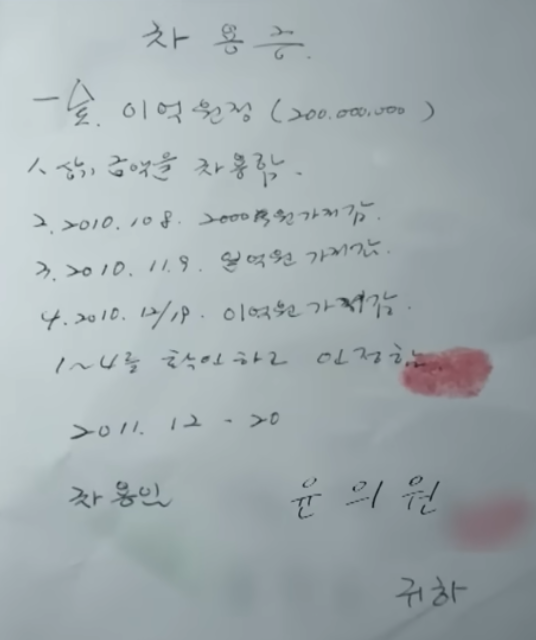 차 용 증.
一金. 이억원정 (200.000.000)
1. 상기 금액을 차용함.
2. 2010. 10 8. 2000만원 가져감.
3. 2010. 11. 9. 일억원 가져감.
4. 2010. 12/19. 이억원 가져감.
1~4를 확인하고 인정함
2011. 12 - 20
차용인 윤 의 원
귀하